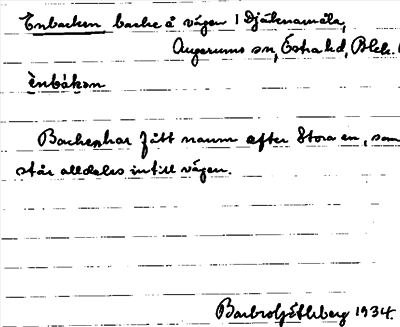 Enbacken backe å vägen i Djäknamåla,
Augerums sn, Östra hd, Blek.
ènbákən
Backen har fått namn efter Stora en, som
står alldeles intill vägen.
Barbro Götlberg 1934.